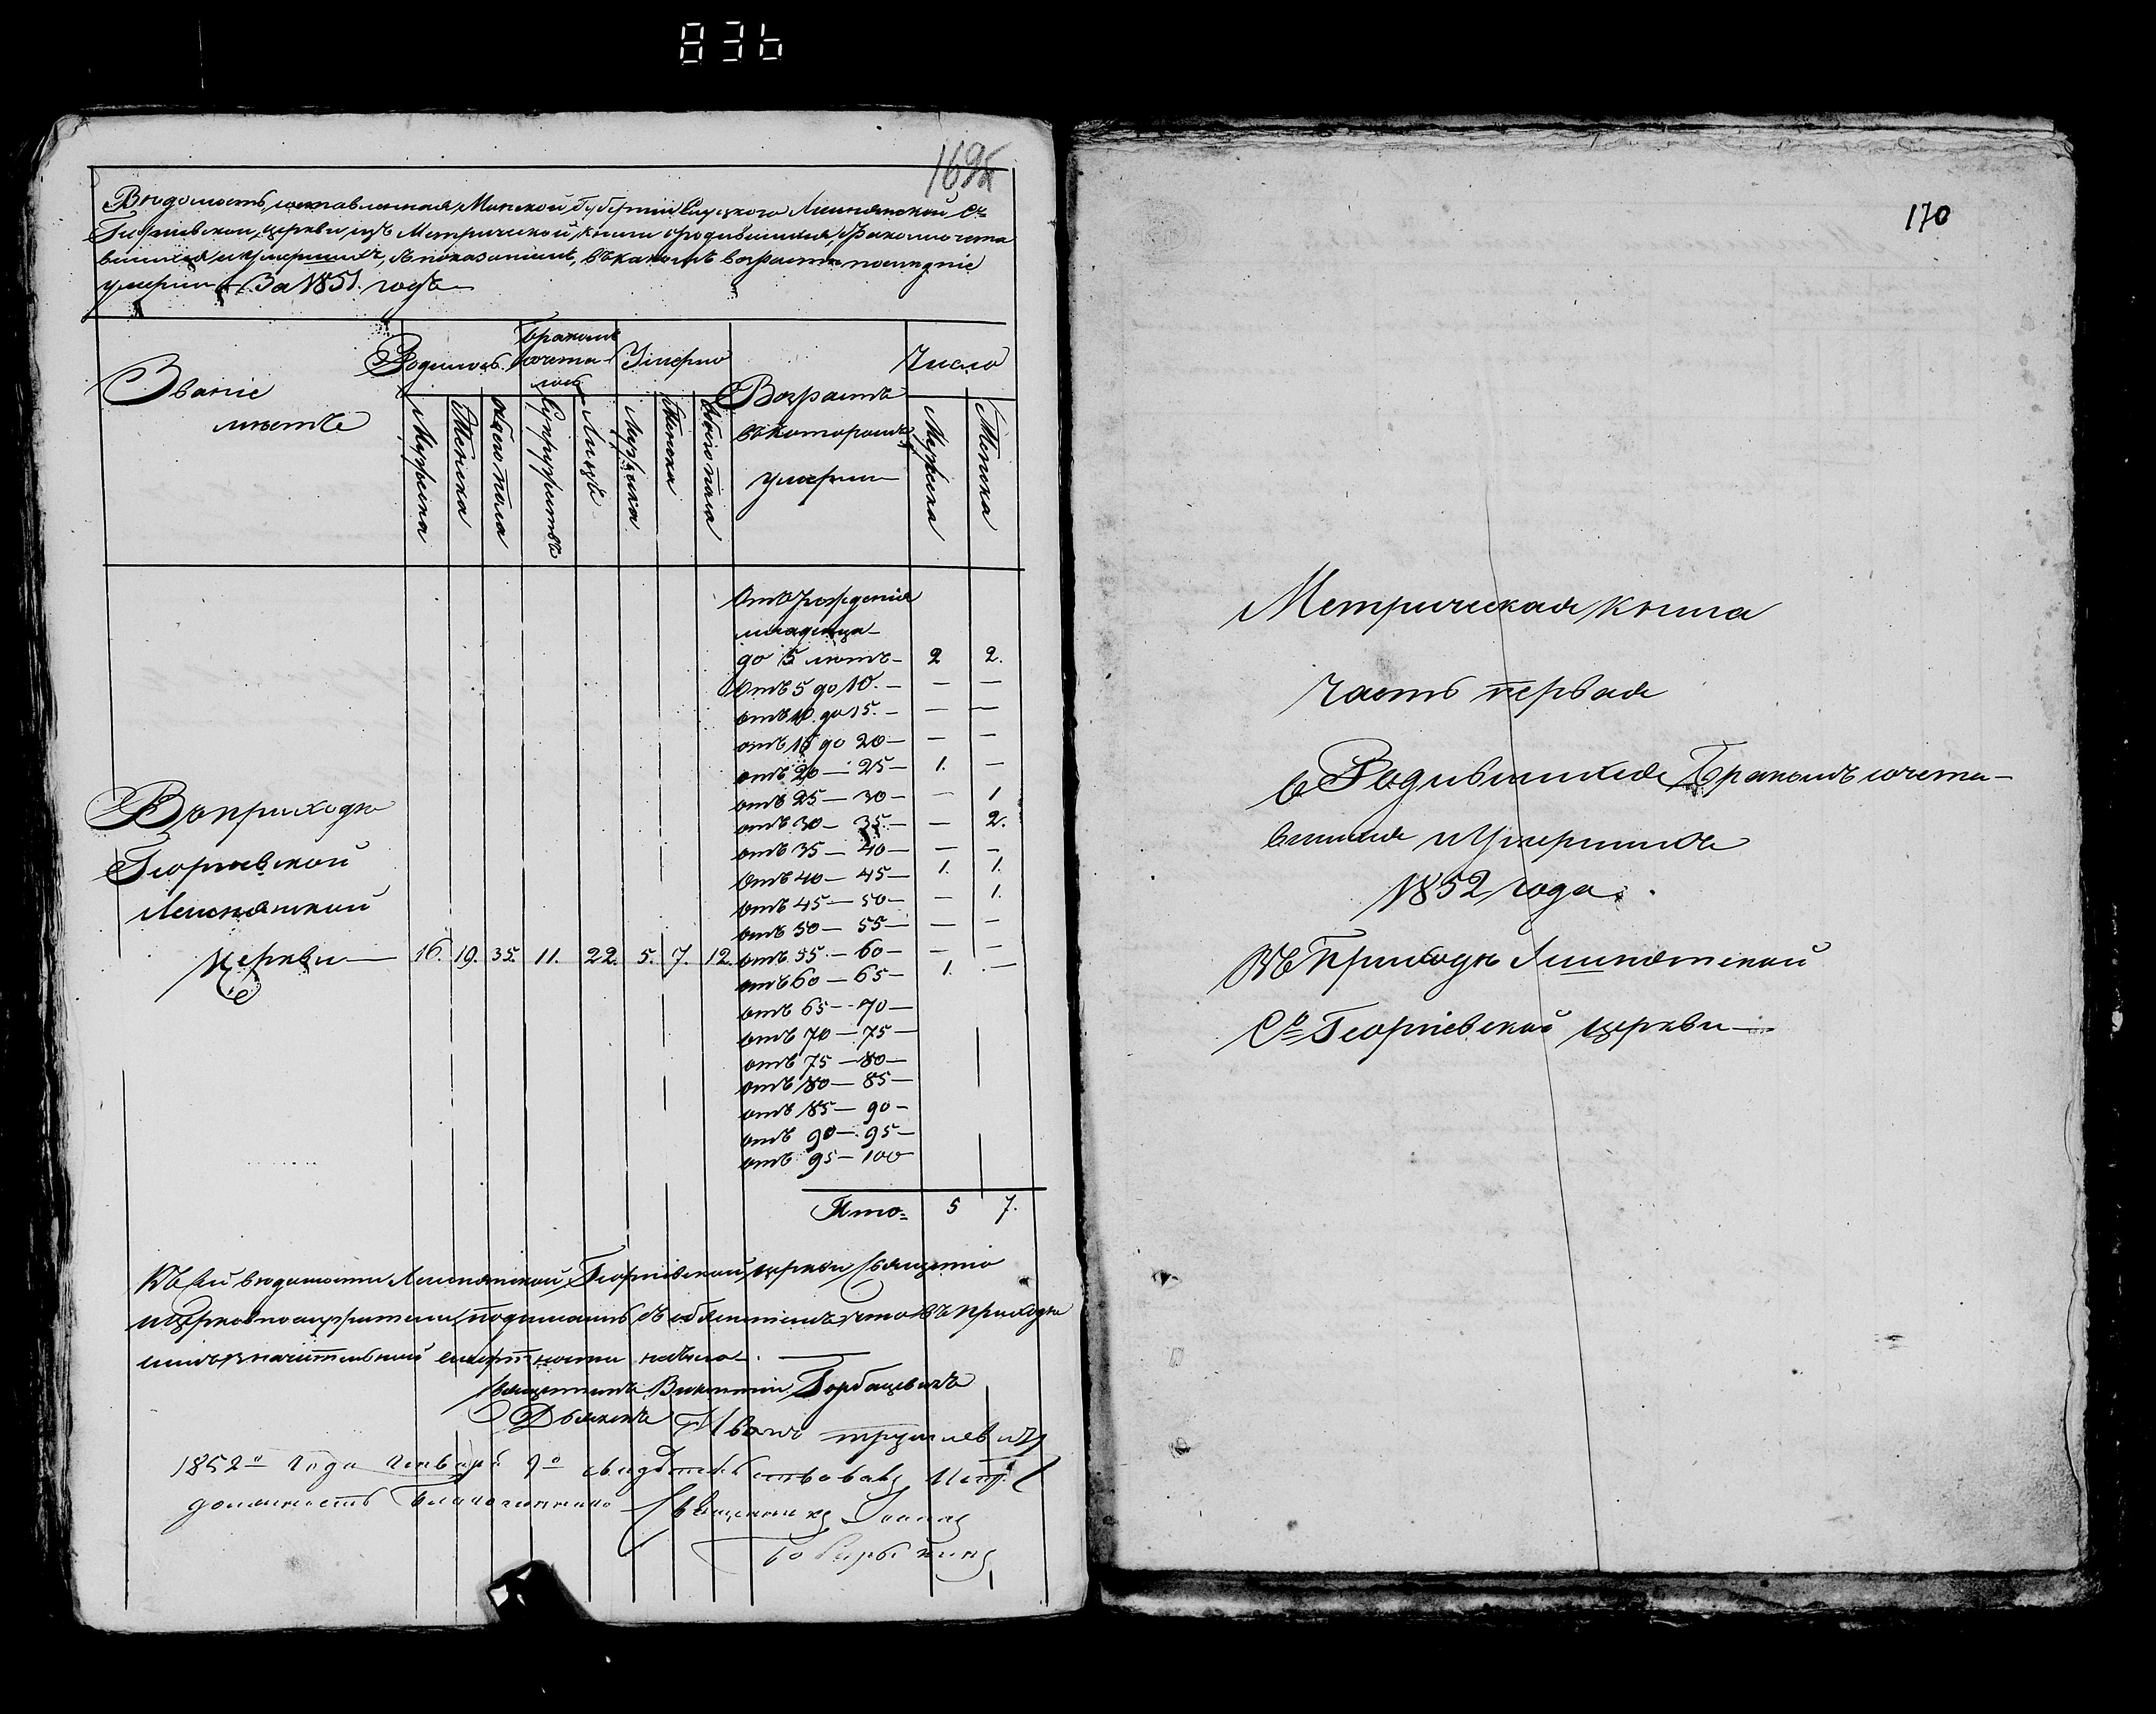 836
169
Вѣдомость, составленная Минской Губерніи Слуцкаго Лешнянской Св
Георгіевской церкви, изъ Метрической книги о родившихся, бракомъ сочета
вшихся и умершихъ, съ показаніемъ, въ какомъ возрастѣ послѣдніе
умерли За 1851. годъ
Званіе
мѣстъ
Родилось
Бракомъ
сочета-
лось
Умерло
Возрастъ
въ которомъ
умерли
Число
Мужска
Женска
обоего пола
Супружествъ
Лицъ
Мужска
Женска
обоего пола
Мужска
Женска
Отъ рожденія
младенца
до 5 лѣтъ — 2 2.
Отъ 5 до 10. — — —
отъ 10. до 15. — — —
отъ 15 до 20 — — —
отъ 20 — 25 — 1. —
отъ 25 — 30 — — 1
отъ 30 — 35 — — 2.
отъ 35 — 40 — — —
Отъ 40 — 45 — 1. 1.
отъ 45 — 50 — — 1.
отъ 50 — 55 — — —
отъ 55 — 60 — — —
отъ 60 — 65 — 1. —
отъ 65 — 70 —
отъ 70 — 75 —
отъ 75 — 80 —
отъ 80 — 85 —
отъ 85 — 90 —
отъ 90 — 95 —
отъ 95 — 100
Въ приходѣ
Георгіевской
Лешнянской
Церкви — 16. 19. 35. 11. 22. 5. 7. 12.
Ито= 5 7.
Къ сей вѣдомости Лешнянской Георгіевской церкви Священно
и Церковнослужители подписались съ объясненіемъ что въ приходѣ
семъ значительной смертности небыло.
Священникъ Викентій Горбацевичъ
Дьячекъ Иванъ
1852го Года Генваря 9го свидѣтельствовалъ Исп.
должность Благочиннаго Священникъ
170
Метрическая книга
часть первая
о Родившихся Бракомъ сочета-
вшихся и Умершихъ
1852 года.
Въ Приходѣ Лешнянской
Св Георгіевской церкви —